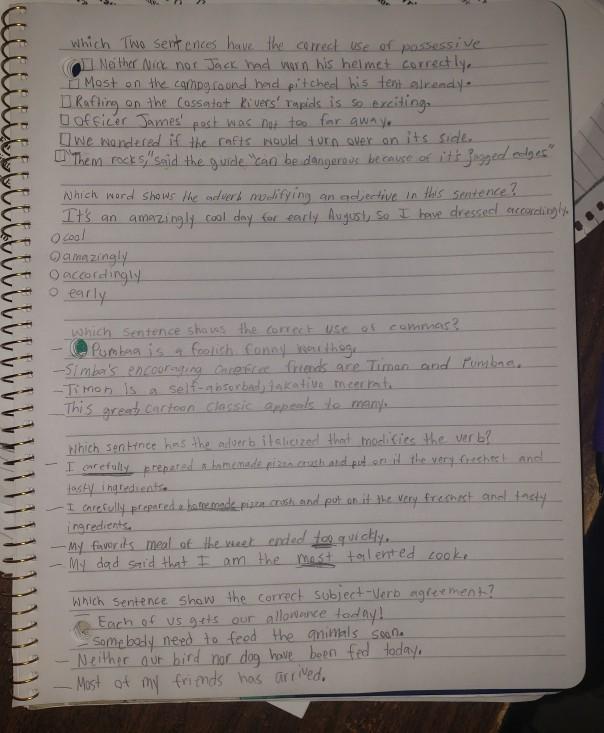 Which Two sentences have the correct use of possessive
□ Neither Nick nor Jack had worn his helmet correctly.
□ Most on the campground had pitched his tent already.
□ Rafting on the Cossatot Rivers' rapids is so exciting.
□ Officer James' post was not too far away.
□ We wondered if the rafts would turn over on its side.
□ "Them rocks," said the guide "can be dangerous because of it's jagged edges"
Which word shows the adverb modifying an adjective in this sentence?
It's an amazingly cool day for early August, so I have dressed accordingly.
○ cool
○ amazingly
○ accordingly
○ early
Which sentence shows the correct use of commas?
- Pumbaa is a foolish funny warthog.
- Simba's encouraging carefree friends are Timon and Pumbaa.
- Timon is a self-absorbed, takative meerkat.
- This great, cartoon classic appeals to many.
Which sentence has the adverb italicized that modifies the verb?
- I carefully prepared a homemade pizza crush and put on it the very freshest and
tasty ingredients.
- I carefully prepared a homemade pizza crush and put on it the very freshest and tasty
ingredients.
- My favorits meal of the week ended too quickly.
- My dad said that I am the most talented cook.
Which sentence show the correct subject-verb agreement?
- Each of us gets our allowance today!
- Somebody need to feed the animals soon.
- Neither our bird nor dog have been fed today.
- Most of my friends has arrived.